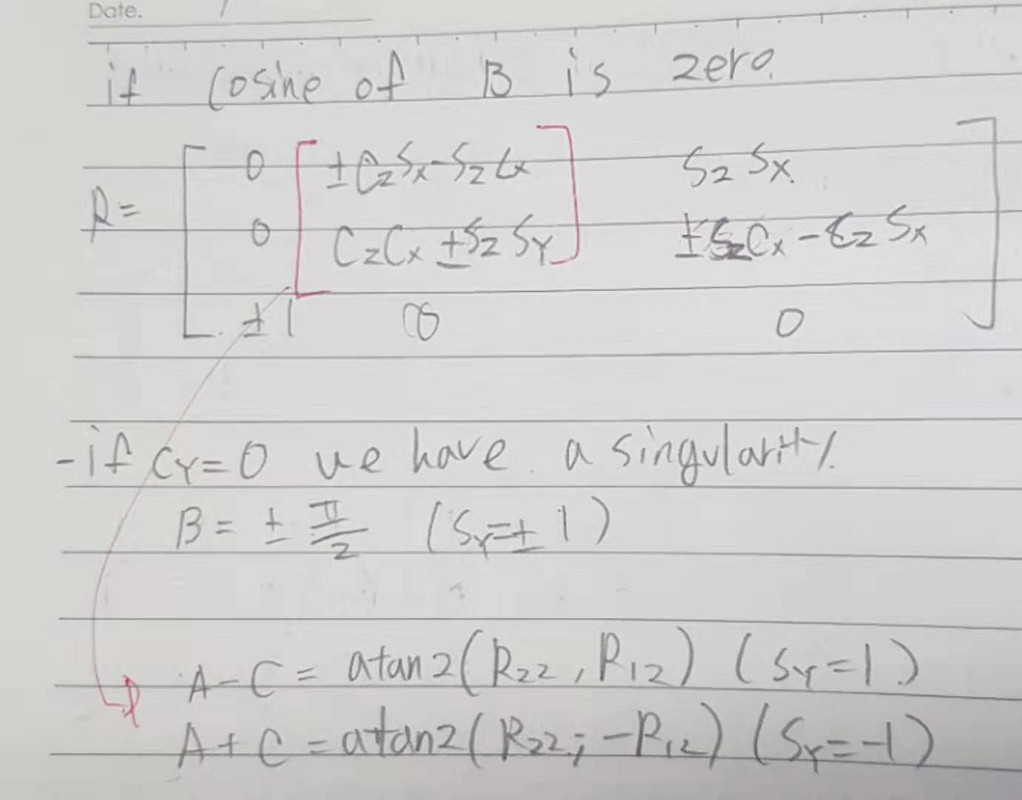 Date.
if Cosine of B is zero.
R= [ 0 ±C₂Sx-S₂Cx S₂Sx.
0 C₂Cx ±S₂Sʏ ±S₂Cx - C₂Sx
±1 0 0 ]
-if Cʏ=0 we have a singularity.
B= ± π/2 (Sʏ=±1)
A-C= atan2(R₂₂, R₁₂) (Sʏ=1)
A+C=atan2(R₂₂, -R₁₂) (Sʏ=-1)